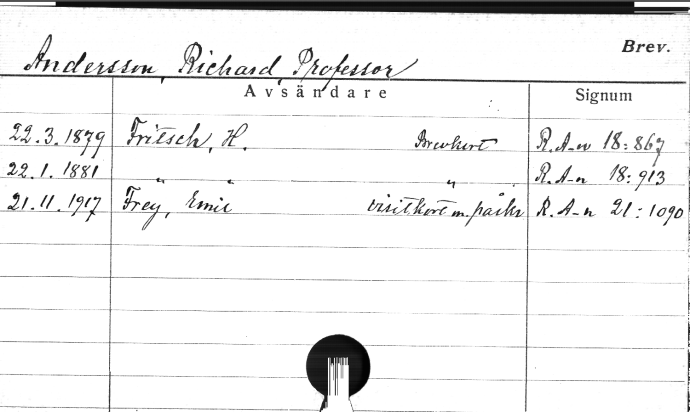 Brev.
Andersson, Richard, Professor
Avsändare Signum
22.3.1879 Fritsch, H. Brevkort R.A-n 18:867
22.1.1881 " " " R.A-n 18:913
21.11.1917 Frey, Emil visitkort m. påskr R.A-n 21:1090